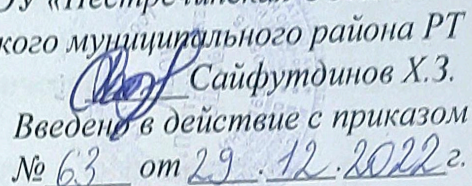 кого муниципального района РТ
Сайфутдинов Х.З.
Введено в действие с приказом
№ 63 от 29.12.2022г.